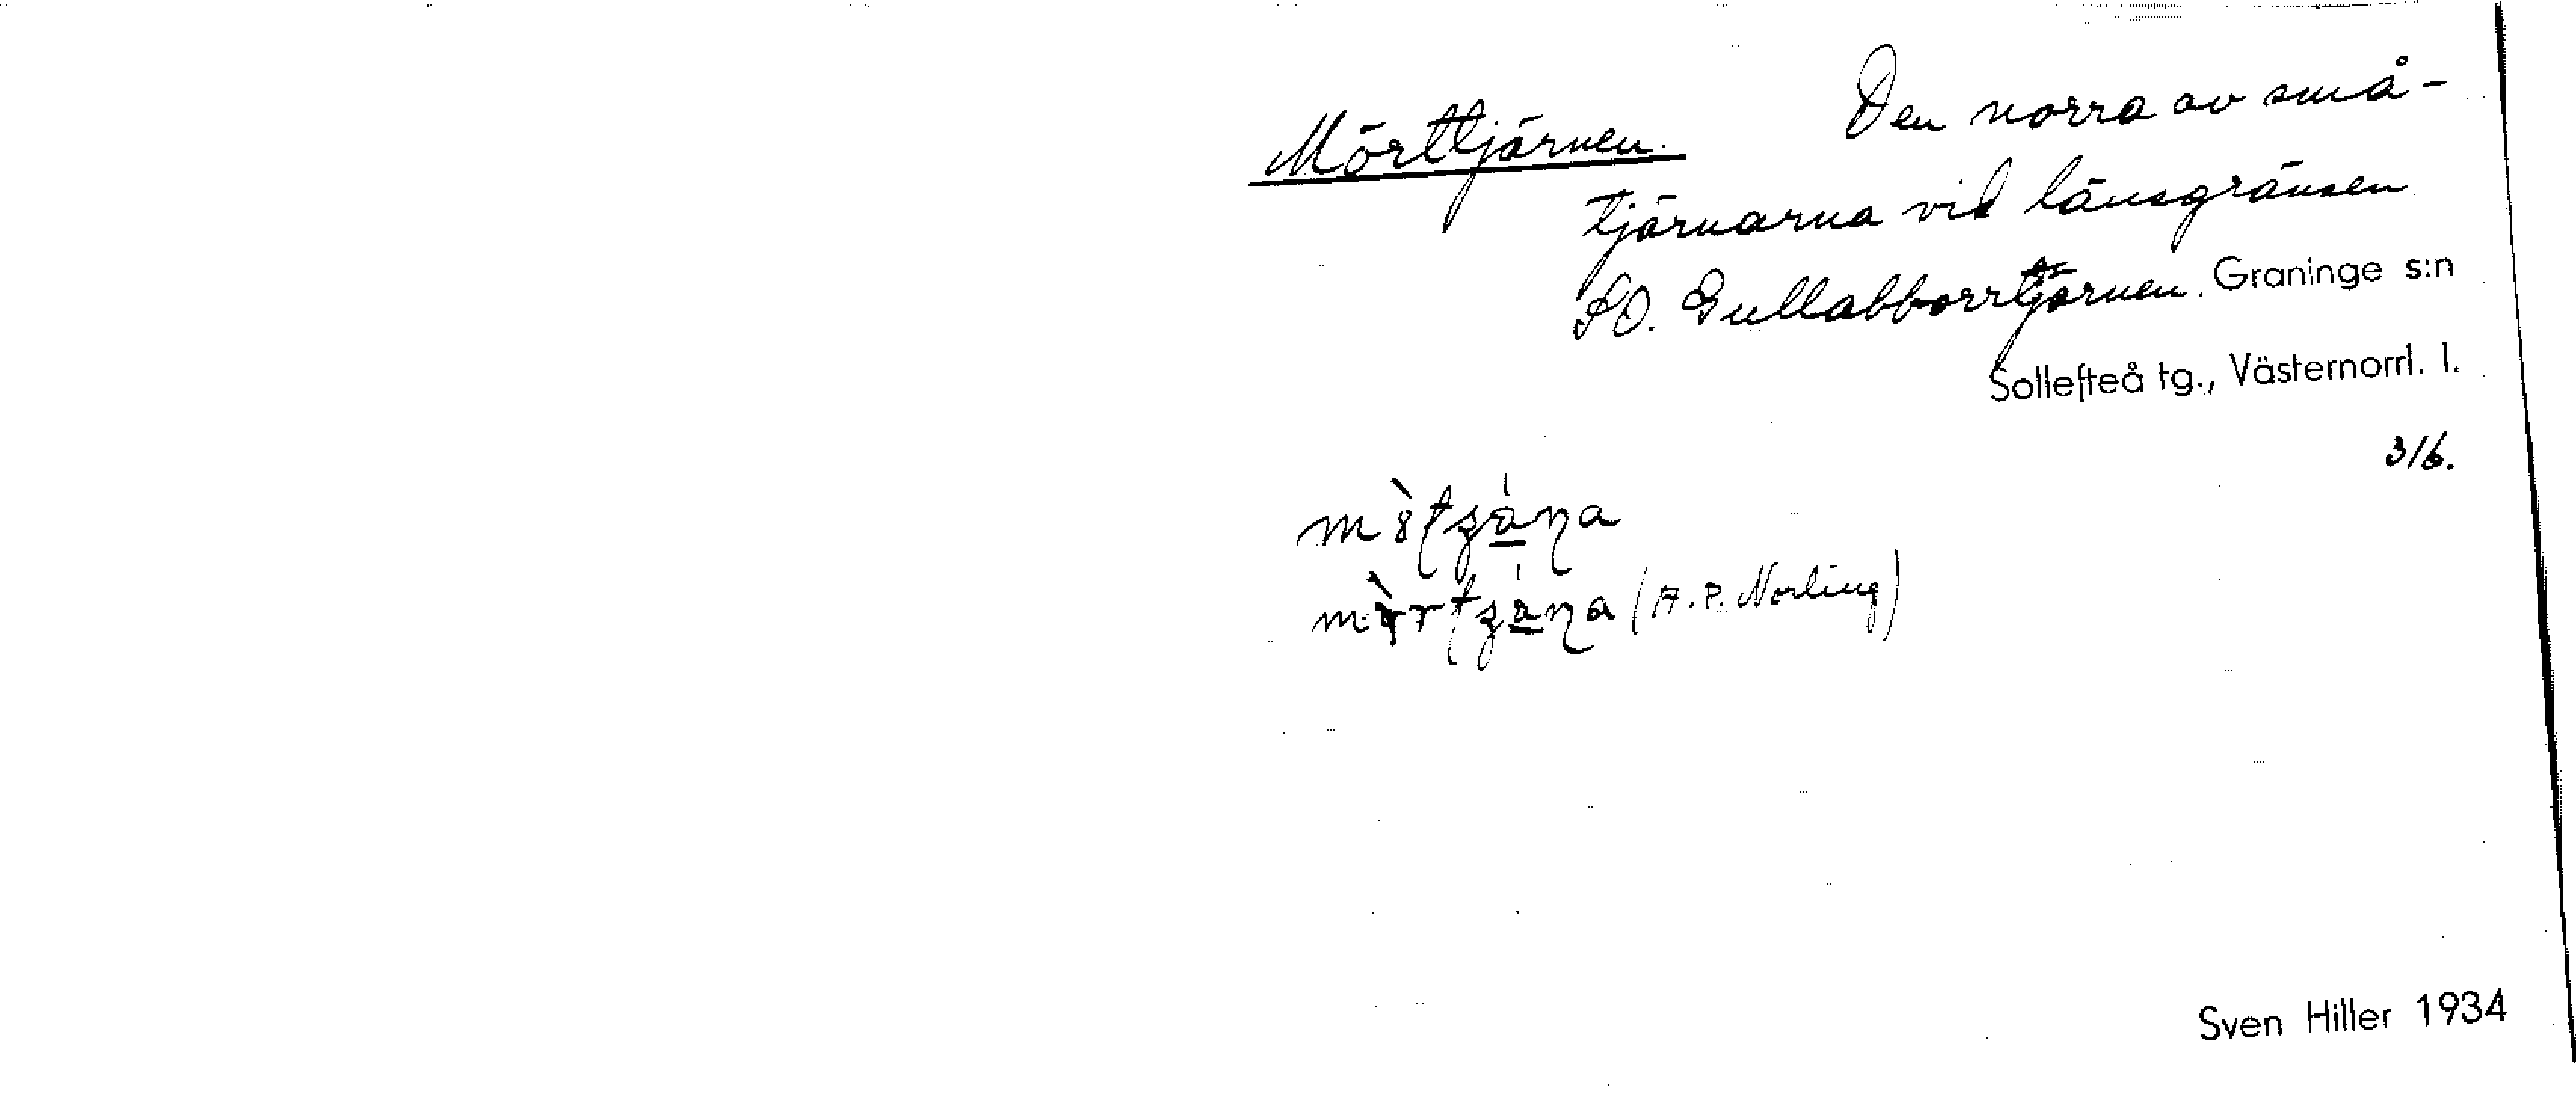 Mörttjärnen. Den norra av små-
tjärnarna vid länsgränsen
SO. Gullabborrtjärnen. Graninge s:n
Sollefteå tg., Västernorrl. l.
3/6.
(A. P. Norling)
Sven Hiller 1934